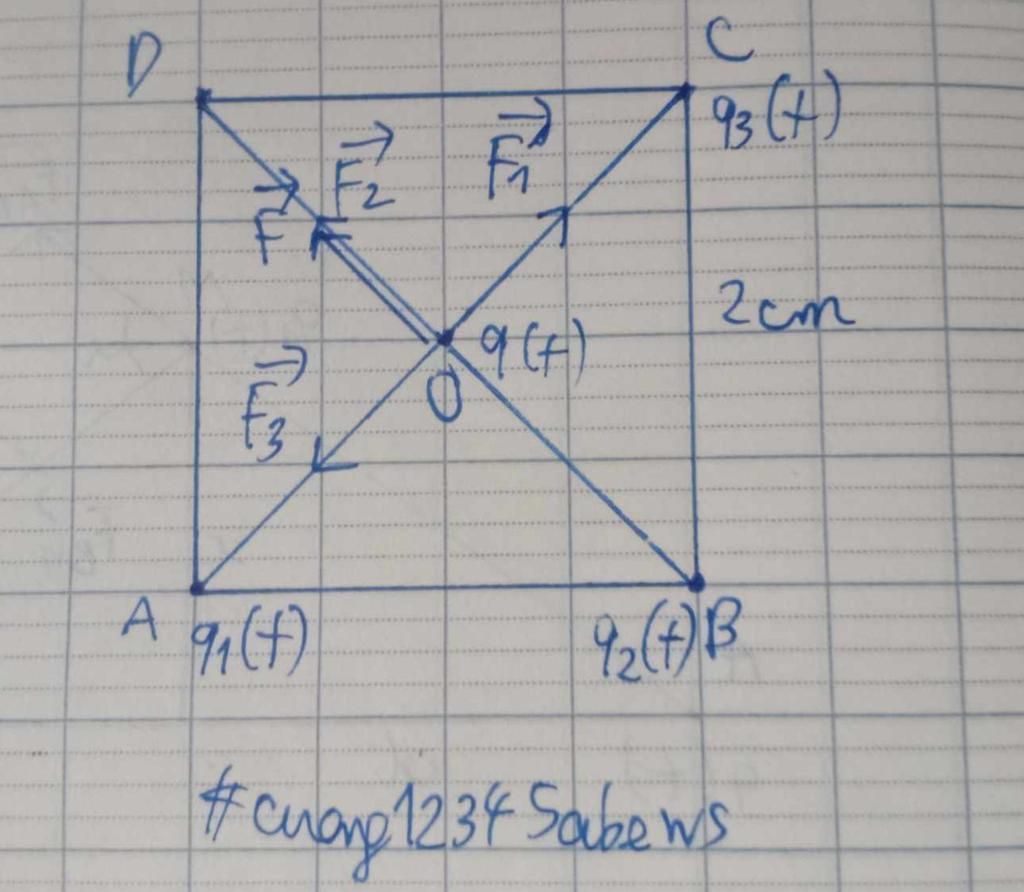 D
C
q3(+)
F1
F2
F
2cm
q(+)
O
F3
A
q1(+)
q2(+)
B
#cuong12345abews